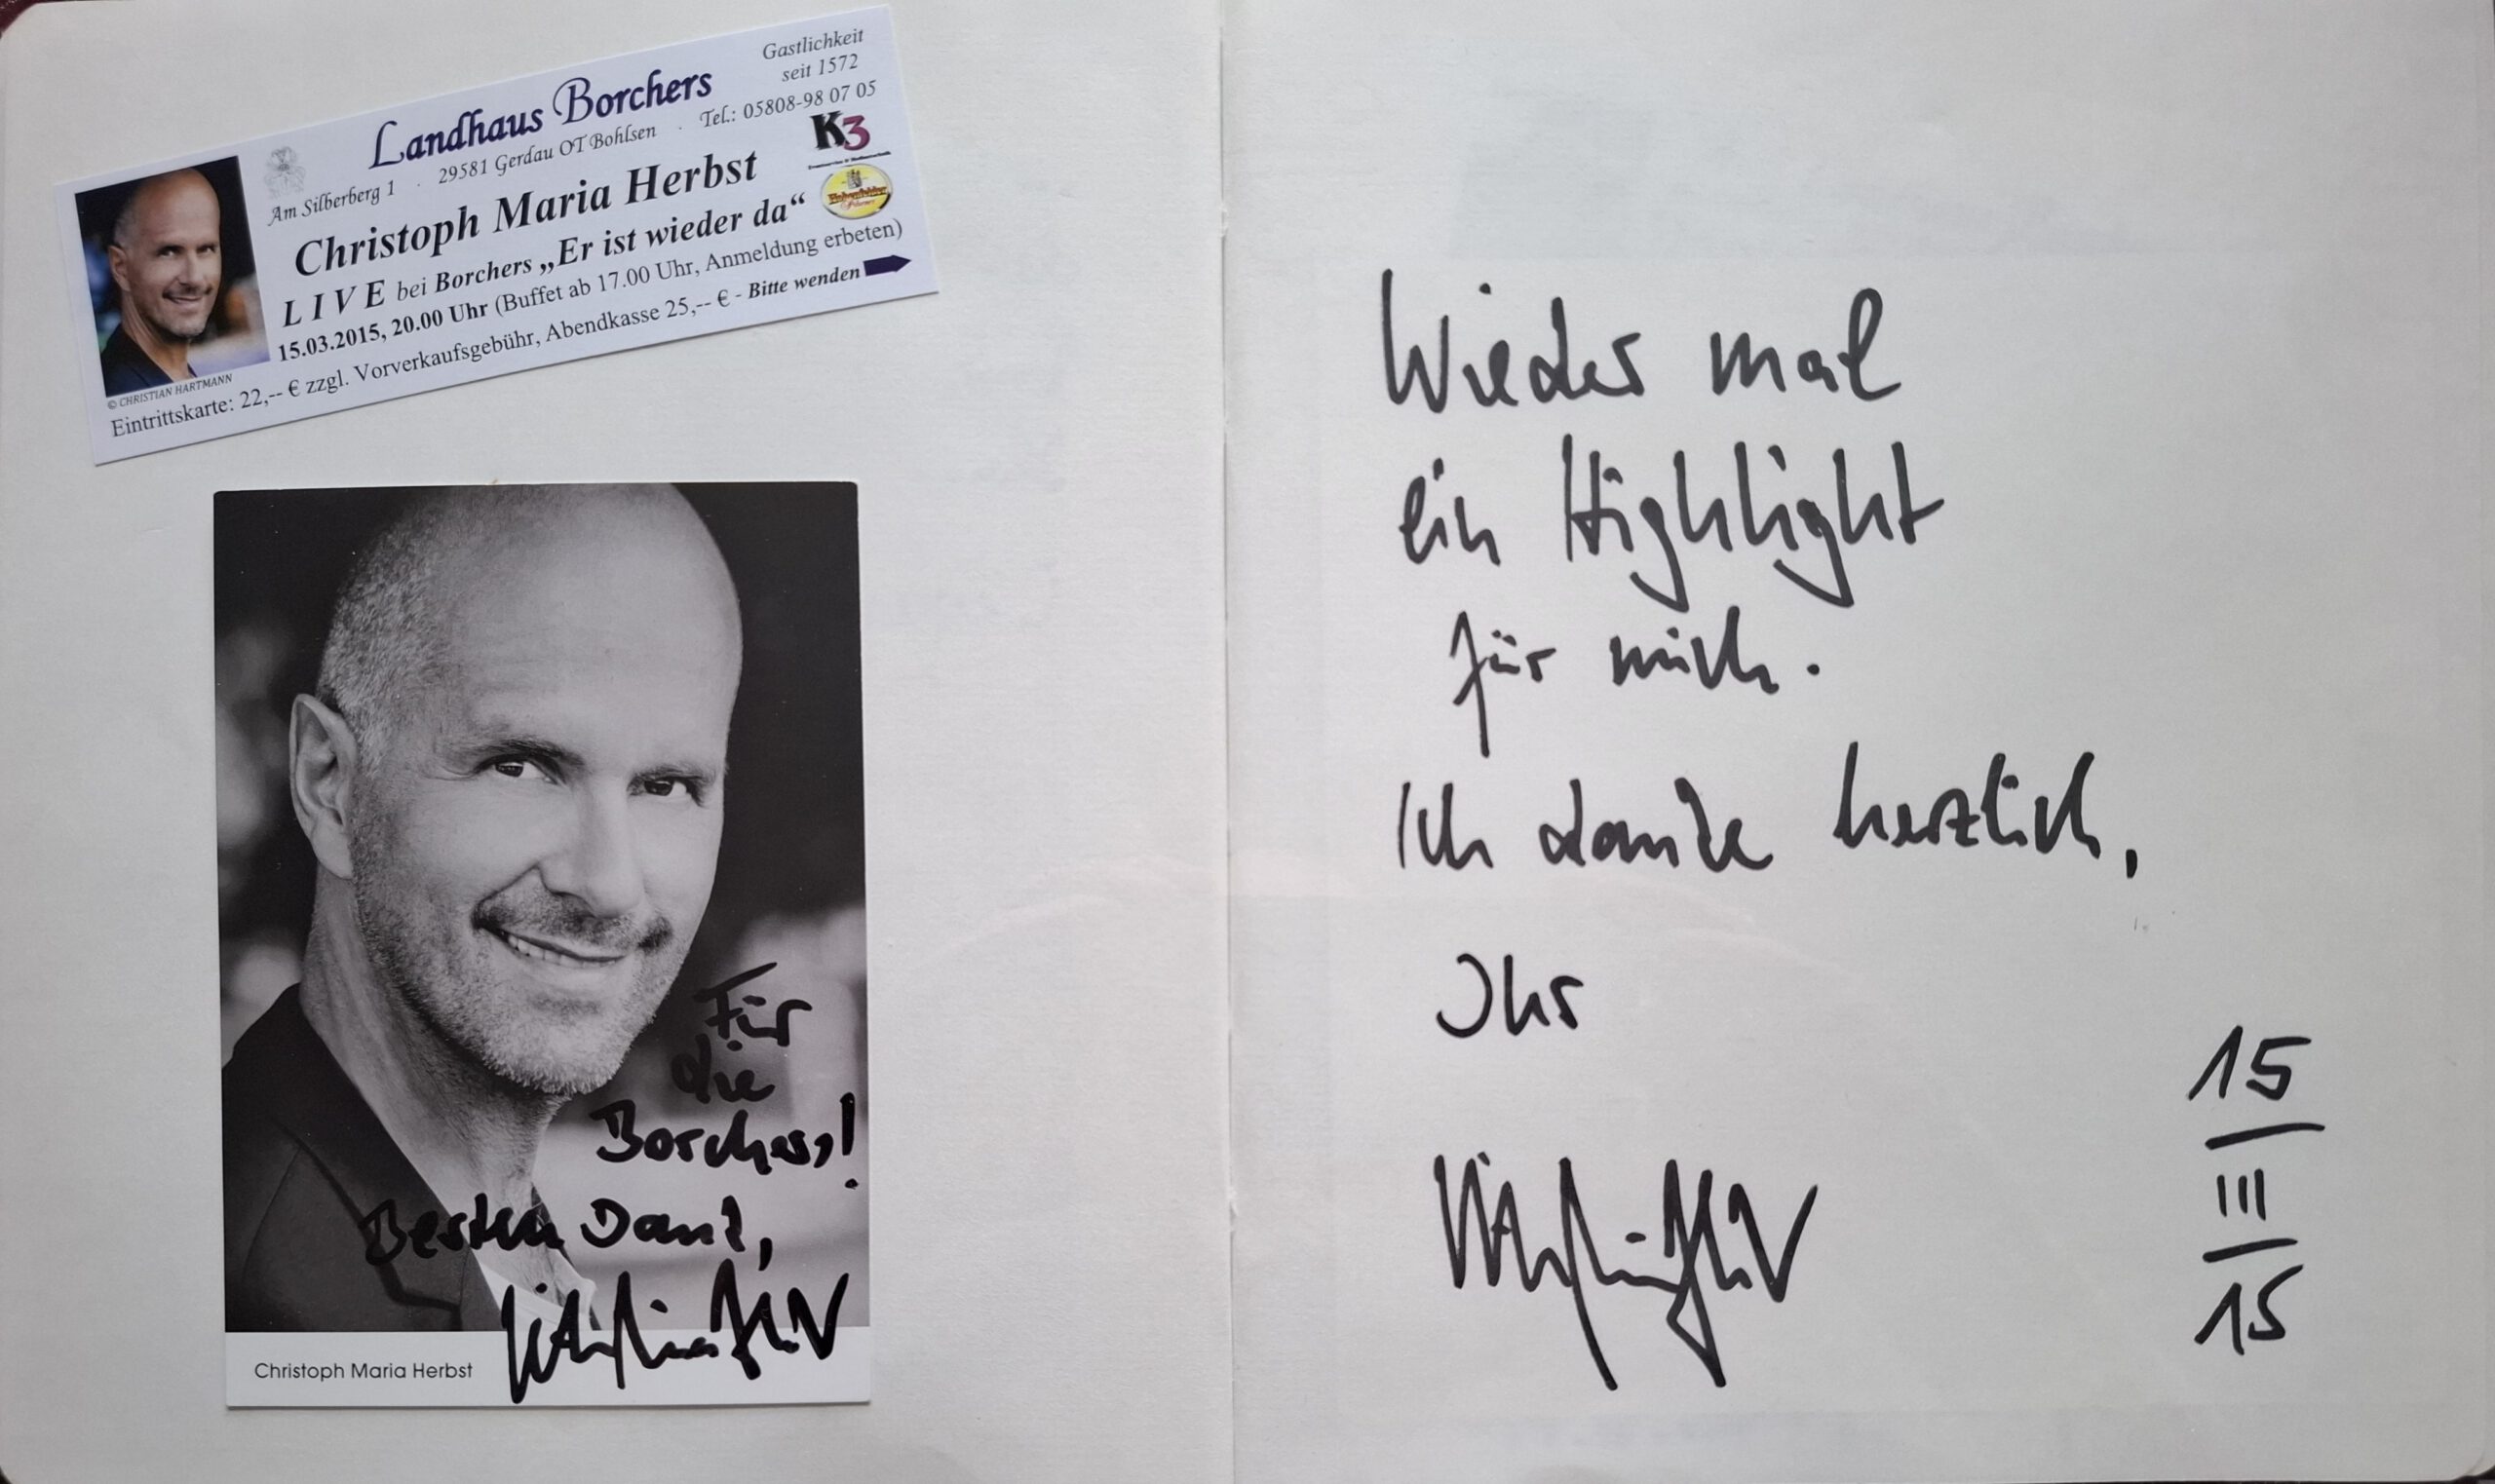 Landhaus Borchers
Gastlichkeit
seit 1572
Am Silberberg 1 · 29581 Gerdau OT Bohlsen · Tel.: 05808-98 07 05
K3
Christoph Maria Herbst
LIVE bei Borchers „Er ist wieder da“
15.03.2015, 20.00 Uhr (Buffet ab 17.00 Uhr, Anmeldung erbeten)
© CHRISTIAN HARTMANN
Eintrittskarte: 22,-- € zzgl. Vorverkaufsgebühr, Abendkasse 25,-- € - Bitte wenden
Für
die
Borchers,!
Besten Dank,
Christoph Maria Herbst
Wieder mal
ein Highlight
für mich.
Ich danke herzlich,
Ihr
15
III
15